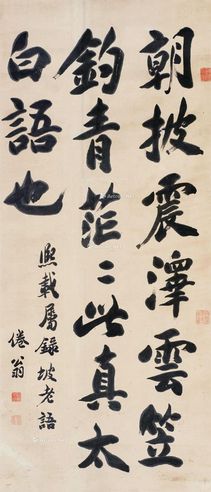 朝披震澤雲笠
釣青茫〻此真太
白語也
熙載屬録坡老語
倦翁